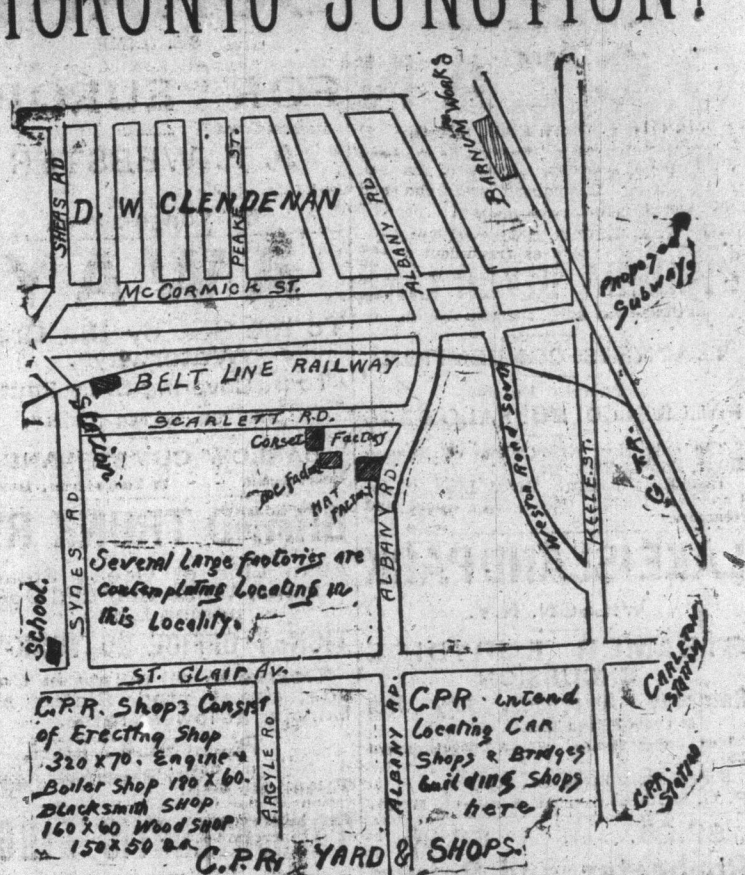 TORONTO JUNCTION.
BARNUM Works
SHEAS RD
D. W CLENDENAN
PEAKE ST.
ALBANY RD.
McCORMICK ST.
Proposed
Subways
BELT LINE RAILWAY
STATION
SCARLETT RD.
Corset Factory
HAT
Factory
ALBANY RD.
WESTON ROAD SOUTH
KEELE ST.
G.T.R.
SYMES RD
Several Large factories are
contemplating Locating in
this Locality.
School.
ST. CLAIR AV.
CARLETON
STATION
C.P.R. Shops Consist
of Erecting Shop
320 x 70. Engine &
Boiler Shop 180 x 60.
Blacksmith SHOP
160 x 60 Wood SHOP
150 x 50
ARGYLE RD
ALBANY RD.
CPR intend
Locating CAR
Shops & Bridges
building Shops
here
C.P.R. Station
C.P.R. YARD & SHOPS.